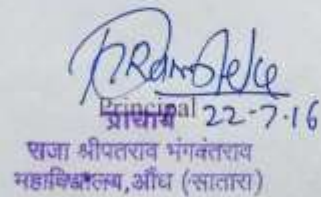 Principal 22-7-16
प्राचार्य
राजा श्रीपतराव भगवंतराव
महाविद्यालय,औंध (सातारा)